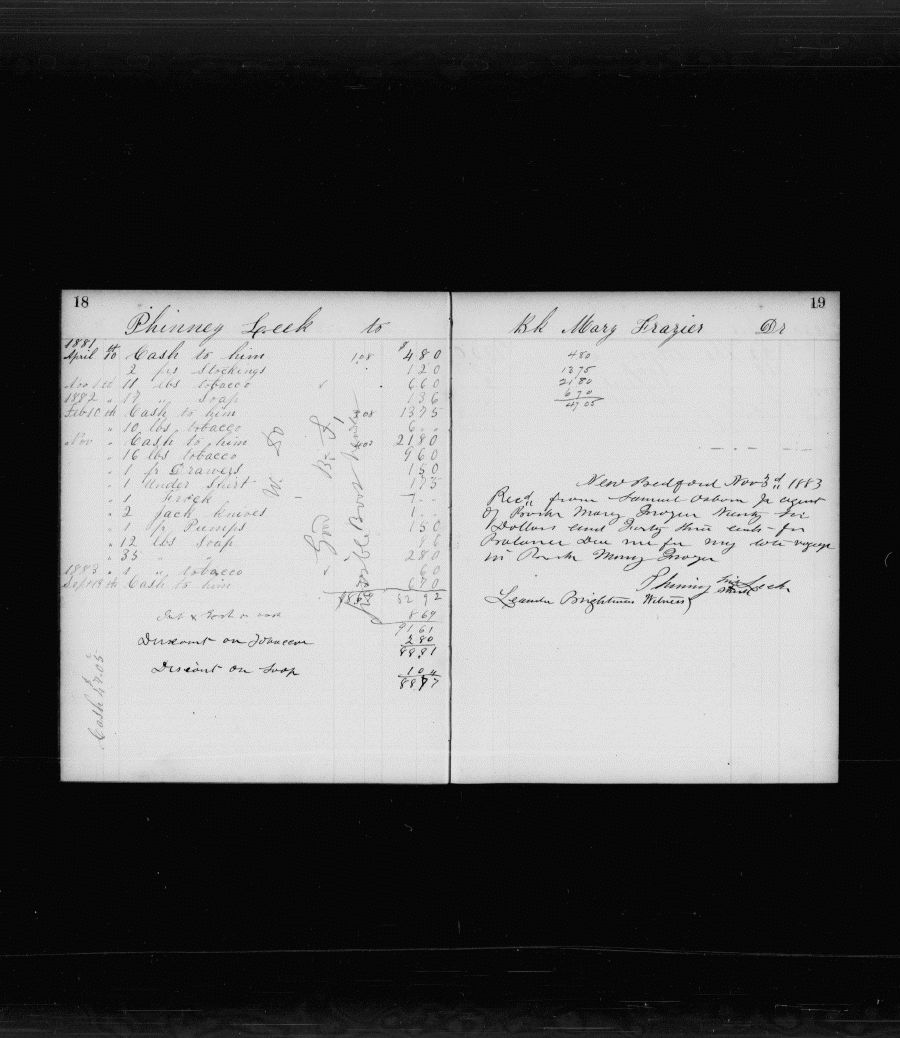 18
Phinney Leek to
1881
April 10 th Cash to him 108 $ 480
" 2 prs Stockings 120
Nov 1st 11 lbs tobacco 660
1882 " 17 " Soap 136
Feb 10 th Cash to him 108 1375
" 10 lbs tobacco 6 " "
Nov " Cash to him 2180
" 16 lbs tobacco 960
" 1 pr Drawers 150
" 1 Under Shirt 175
" 1 frock
" 2 jack knives 1 " "
" 1 pr Pumps 150
" 12 lbs Soap 96
" 35 " " 280
1883 " 1 " tobacco 60
Sept 19 th Cash to him 670
8292
869
9161
Discount on Tobacco 280
8881
Discount on Soap 104
8877
Cash 47.05
W. 80
Good
19
Bk Mary Frazier Dr
480
1375
2180
670
4705
New Bedford Nov 3d 1883
Recd from Samuel Osborn Jr agent
of Bark Mary Frazier Ninty Six
Dollars and Forty three cents for
Balance Due me for my late voyage
in Bark Mary Frazier
Phinney his mark Leek
Leander Brightman Witness